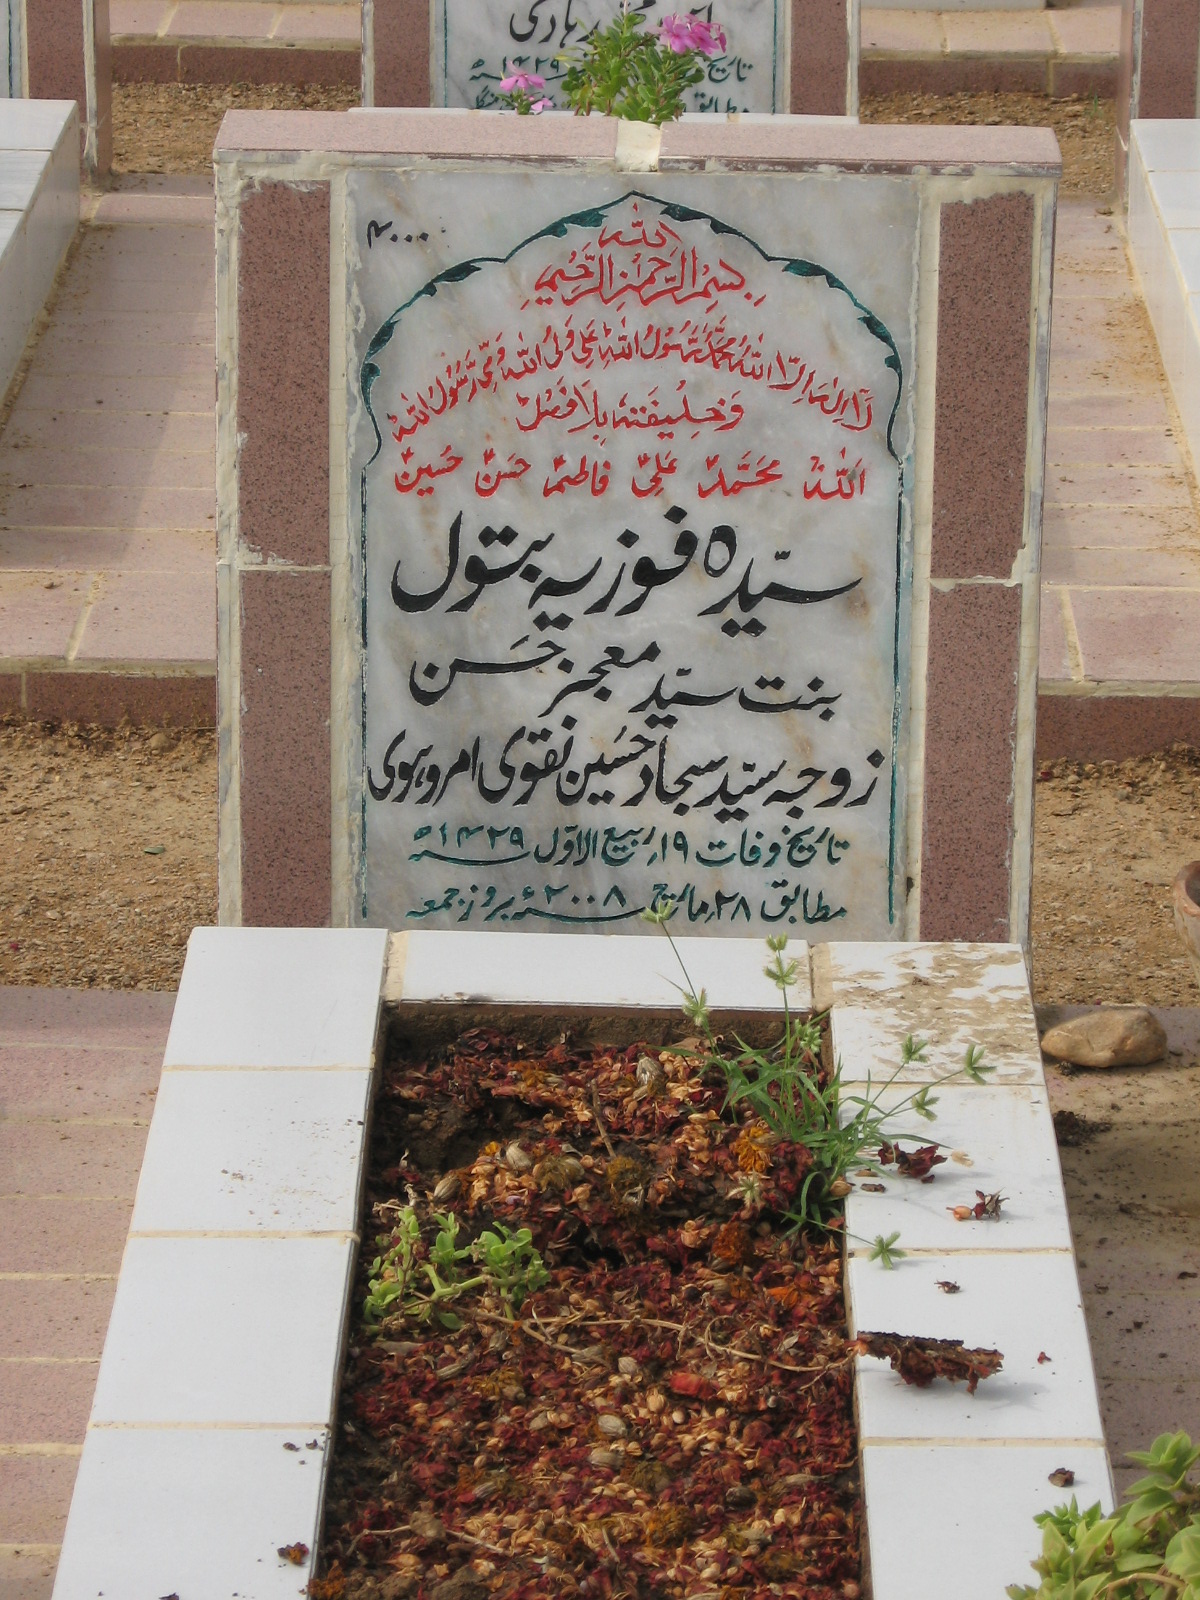 هادی
تاریخ
۱۴۲۹ھ
مطابق
۴۰۰۰
یا اللہ
بِسْمِ اللہِ الرَّحْمٰنِ الرَّحِیْمِ
لَا اِلٰہَ اِلَّا اللہُ مُحَمَّدٌ رَّسُوْلُ اللہِ عَلِیٌّ وَلِیُّ اللہِ وَصِیُّ رَسُوْلِ اللہِ
وَخَلِیْفَتُہٗ بِلَا فَصْلٍ
اَللہُ مُحَمَّدٌ عَلِیٌّ فَاطِمَۃٌ حَسَنٌ حُسَیْنٌ
سیّدہ فوزیہ بتول
بنت سیّد معجز حَسَن
زوجہ سیّد سجاد حُسَین نقوی امروہوی
تاریخ وفات ۱۹؍ ربیع الاوّل ۱۴۲۹ھ
مطابق ۲۸؍ مارچ ۲۰۰۸ء بروز جمعہ